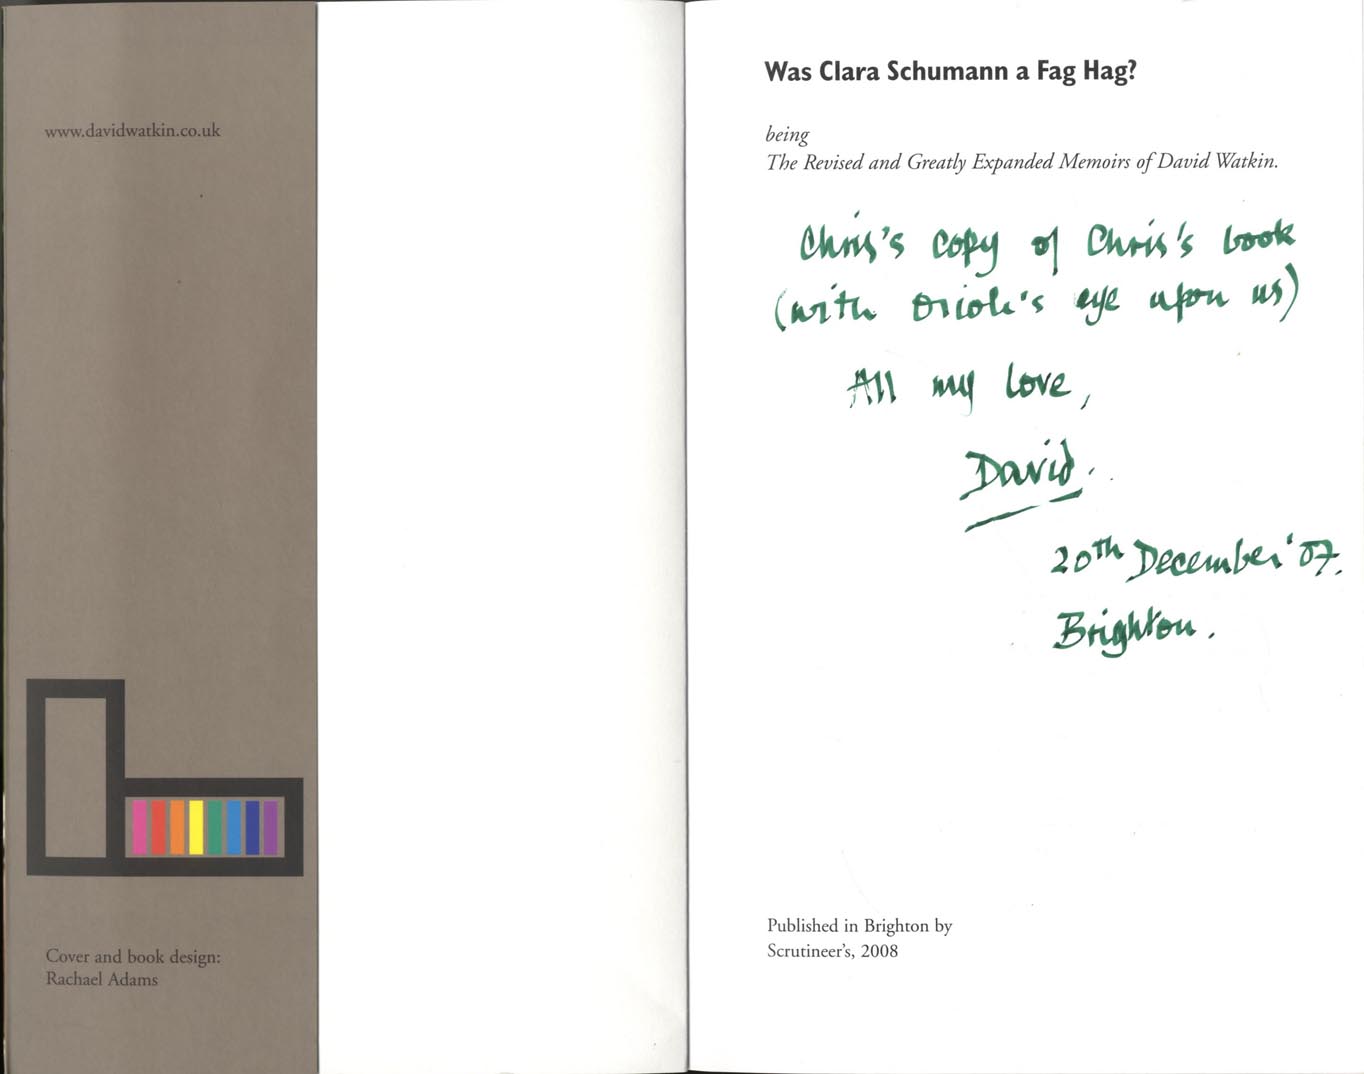 www.davidwatkin.co.uk
Cover and book design:
Rachael Adams
Was Clara Schumann a Fag Hag?
being
The Revised and Greatly Expanded Memoirs of David Watkin.
Chris's copy of Chris's book
(with Oriole's eye upon us)
All my love,
David.
20th December '07.
Brighton.
Published in Brighton by
Scrutineer's, 2008